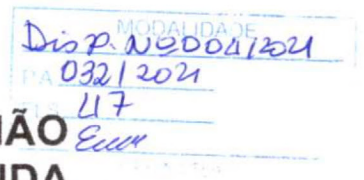 MODALIDADE
Disp. Nº004/2021
PA 032/2021
47
ÃO
NDA